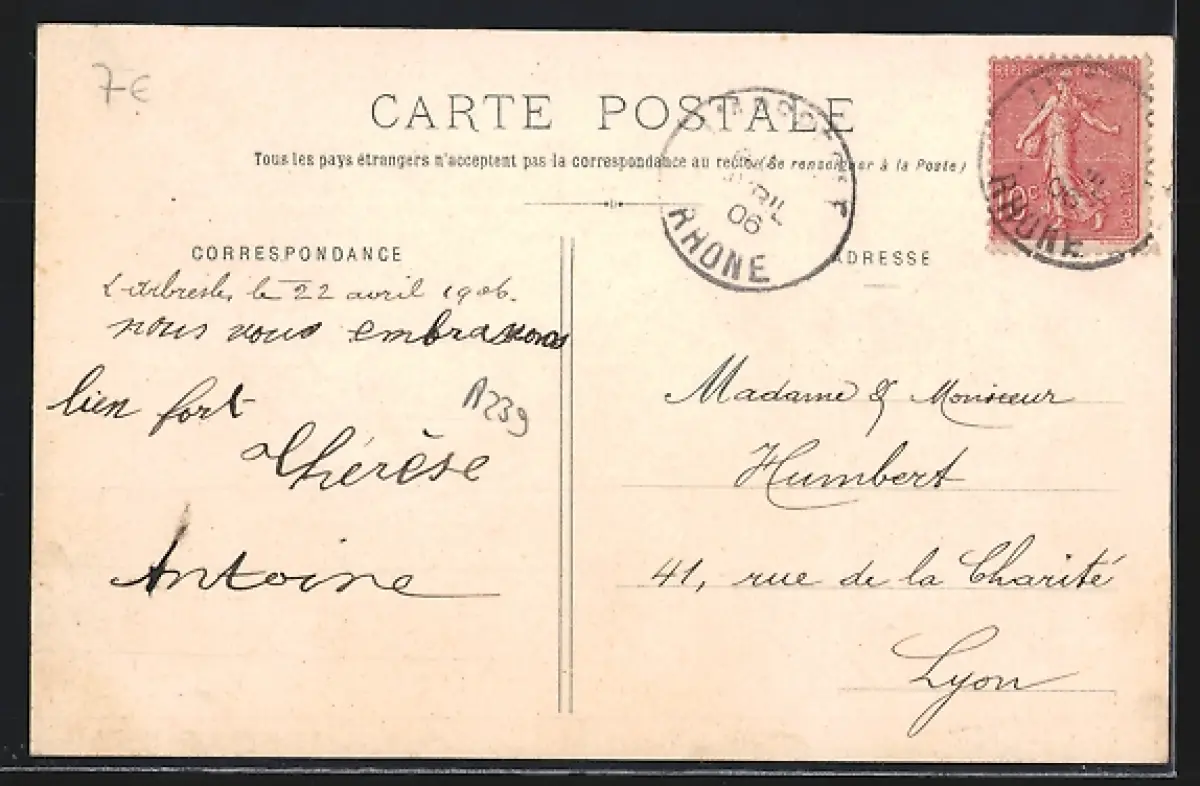 7€
CARTE POSTALE
Tous les pays étrangers n'acceptent pas la correspondance au recto (Se renseigner à la Poste)
AVRIL
06
RHONE
10c
POSTES
06
RHONE
CORRESPONDANCE
L'Arbresle, le 22 avril 1906.
nous vous embrassons
bien fort
Thérèse
Antoine
A239
ADRESSE
Madame & Monsieur
Humbert
41, rue de la Charité
Lyon